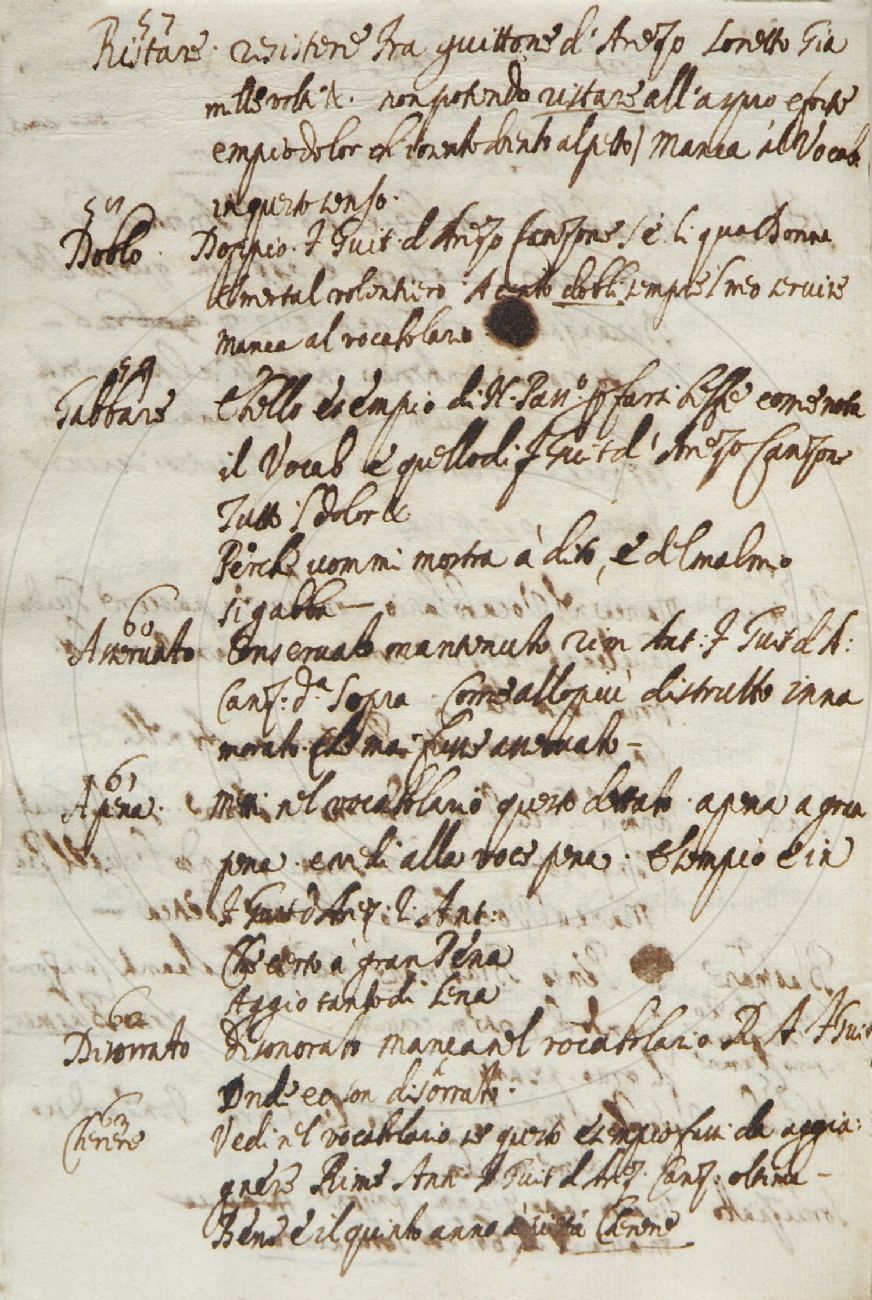 57
Ristare. resistere Fra guittone d'Arezzo Sonetto Gia
mille volti &. non potendo ristare all'aspro e forte
empio dolor ch' dento al petto / Manca al Vocab.
in questo senso.
58
Doblo. Doppio. F Guit d Arezzo Canzone Se li qual Donna
volentiero. dobli sempre l meo servire
manca al vocabolario
59
Gabbare E bello esempio di N. Pass.º p farsi beffe come nota
il Vocab e quello di F Guit d' Arezzo Canzone
Tutto l dolor &.
Perche uom mi mostra à dito, e del mal mio
si gabba —
60
Asservato Conservato mantenuto rim Ant: F Guit d A:
Canz: d.ª Sopra. Come allo piu distrutto inna
morato che mai fusse asservato —
61
Apena. Metti nel vocabolario questo dettato. apena a gran
pena. e vedi alla voce pena. esempio è in
F Guit d Arez: R: Ant:
Che certo à gran Pena
Aggio tanto di Lena
62
Disorrato disonorato manca nel vocabolario R. A. F Guit
Onde eo son disorrato.
63
Cherere Vedi nel vocabolario se questo esempio fusse da aggiu:
gnere Rime Ant. F Guit d Arez. Canz: oltima —
Bene è il quinto anno à Cherere